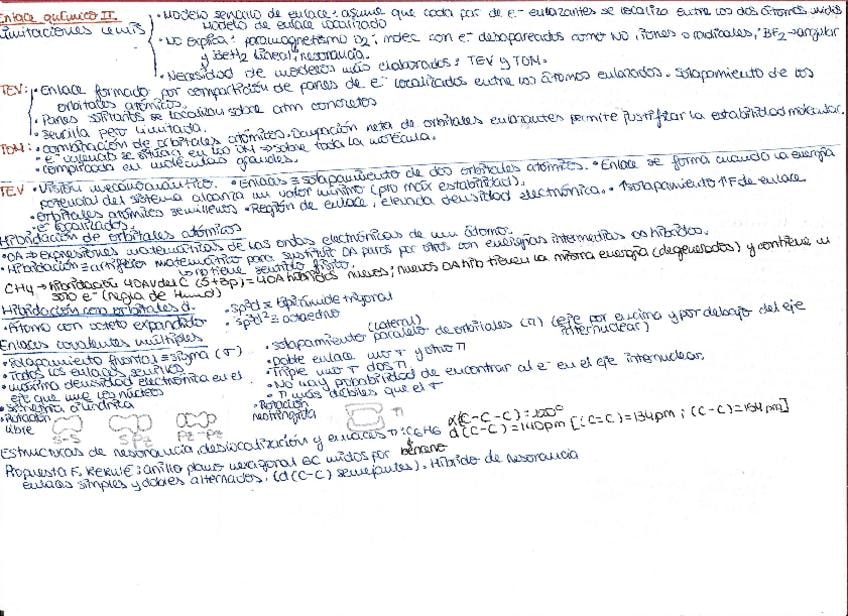 Enlace químico II.
Limitaciones Lewis
· Modelo sencillo de enlace: asume que cada par de e- enlazantes se localiza entre los dos átomos unidos
Modelo de enlace localizado
· NO Explica: paramagnetismo O2; molec con e- desapareados como NO, iones o radicales,
y BeH2 lineal; resonancia.
· Necesidad de modelos más elaborados: TEV y TOM.
TEV: · Enlace formado por compartición de pares de e- localizados entre los átomos enlazados. Solapamiento de los
orbitales atómicos.
· Pares solitarios se localizan sobre atm concretos
· Sencilla pero limitada.
TOM: · combinación de orbitales atómicos. Ocupación neta de orbitales enlazantes permite justificar la estabilidad molecular.
· e- valencia se sitúan en los OM → sobre toda la molécula.
· complicada en moléculas grandes.
TEV · Visión mecanocuántico. · Enlaces = solapamiento de dos orbitales atómicos. · Enlace se forma cuando la energía
potencial del sistema alcanza un valor mínimo (pto máx estabilidad).
· Orbitales atómicos semillenos · Región de enlace, elevada densidad electrónica. · ↑solapamiento ↑F de enlace
· e- localizados.
Hibridación de orbitales atómicos
· OA → expresiones matemáticas de las ondas electrónicas de un átomo.
· Hibridación = artificio matemático para sustituir OA puros por otros con energías intermedias OA híbridos.
no tiene sentido físico.
CH4 → hibridación 4OA val del C (S+3p) = 4OA híbridos nuevos; nuevos OA hib tienen la misma energía (degenerados) y contiene un
solo e- (regla de Hund)
Hibridación con orbitales d.
· Átomo con octeto expandido
· sp3d = bipirámide trigonal
· sp3d2 = octaedro
Enlaces covalentes múltiples
· solapamiento frontal = sigma (σ)
· Todos los enlaces sencillos
· máxima densidad electrónica en el
eje que une los núcleos
· simetría cilíndrica
· Rotación
libre
S-S
S Pz
Pz-Pz
(lateral)
· solapamiento paralelo de orbitales (π) (eje por encima y por debajo del eje
internuclear)
· Doble enlace uno σ y otro π
· Triple uno σ dos π
· No hay probabilidad de encontrar al e- en el eje internuclear.
· π más débiles que el σ
· Rotación
restringida
π
Estructuras de resonancia, deslocalización y enlaces π: C6H6
benceno
α(C-C-C) = 120°
d(C-C) = 140pm [:C=C) = 134pm ; (C-C) = 154pm]
Propuesta F. KEKULÉ: anillo plano hexagonal 6C unidos por
enlaces simples y dobles alternados. (d(C-C) semejantes). Híbrido de resonancia